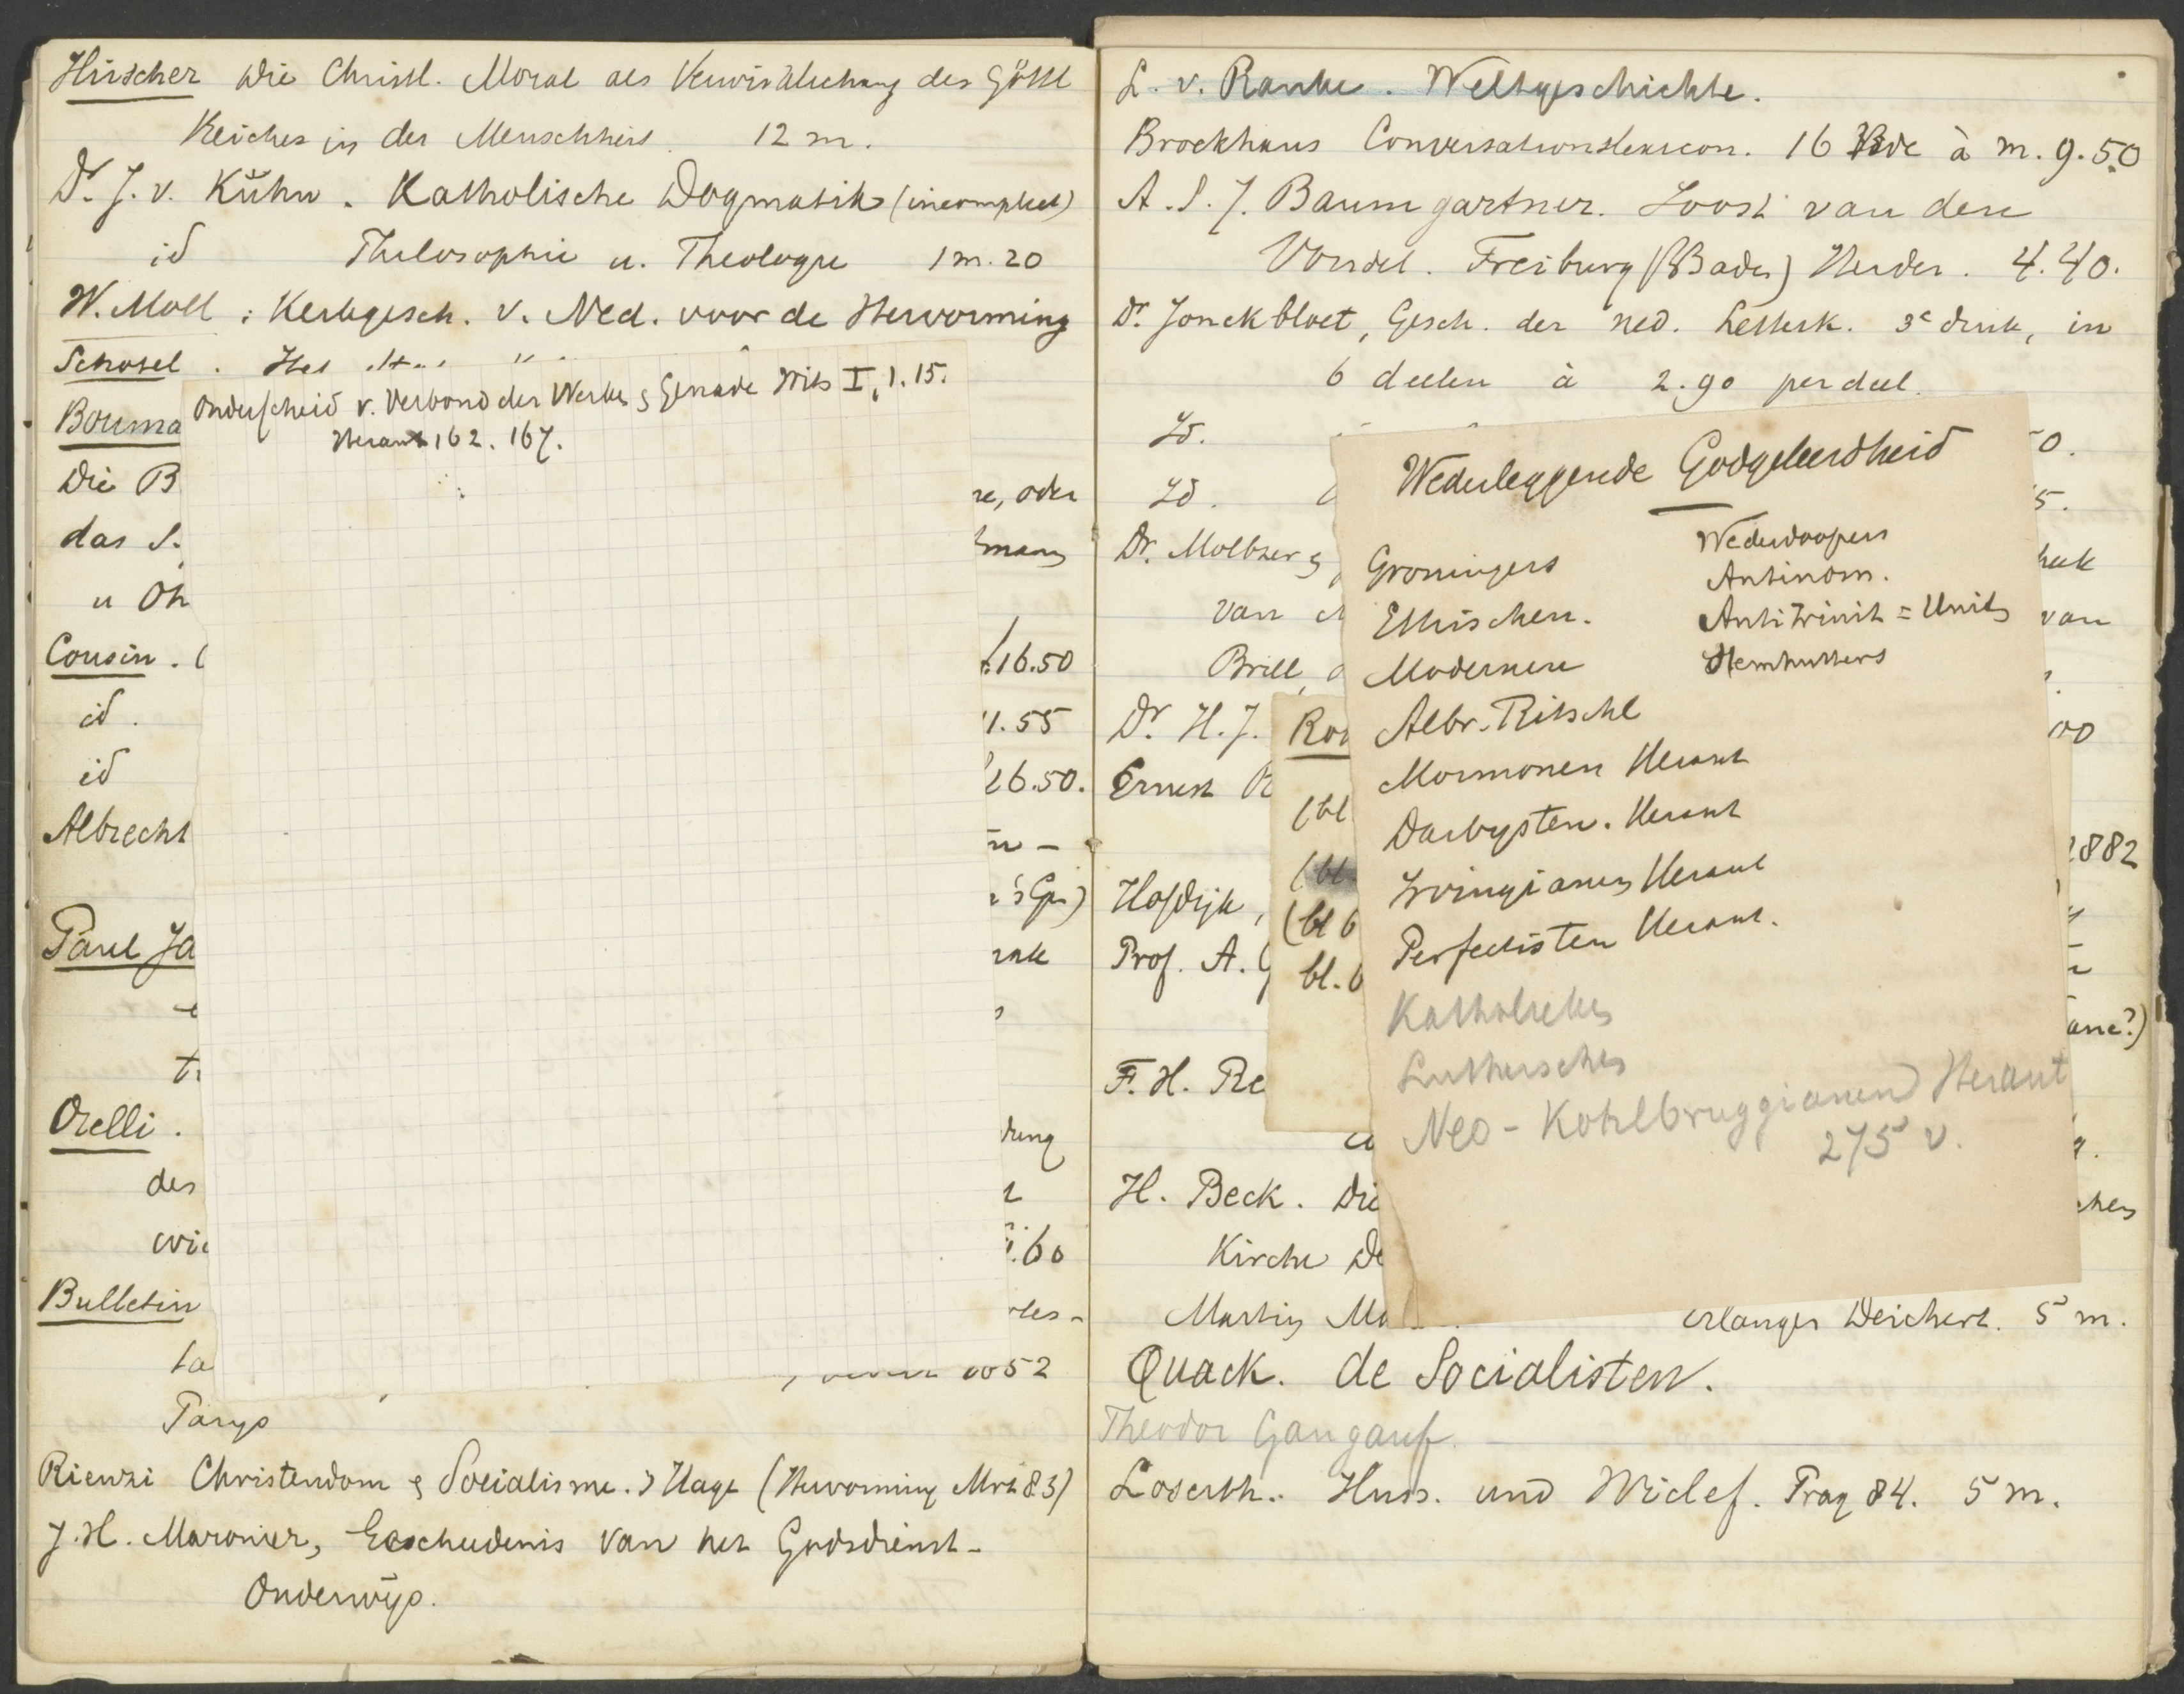 Hirscher Die Christl. Moral als Verwirklichung des Göttl
Reiches in der Menschheit 12 m.
Dr. J. v. Kühn. Katholische Dogmatik (incompleet)
id Philosophie u. Theologie 1 m. 20
W. Moll: Kerkgesch. v. Ned. voor de Hervorming
Scholel. Het
Onderscheid v. Verbond der Werken & Genade Wits I, 1. 15.
Heraut 162. 167.
Bouma
Die B
re, oder
das S.
u Oh
Cousin. (
16.50
id.
1.55
id
26.50.
Albrecht
'sGr)
Paul Ja
Orelli.
dung
des
wie
.60
Bulletin
tes-
ta
52
Parys
Rienzi Christendom & Socialisme. 's Hage (Hervorming Mrt 83)
J. H. Maronier, Geschiedenis van het Godsdienst-
Onderwijs.
L. v. Ranke. Weltgeschichte.
Brockhaus Conversationslexicon. 16 Bde à m. 9.50
A. S. J. Baumgartner. Joost van den
Vondel. Freiburg (Baden) Herder. 4.40.
Dr. Jonckbloet, Gesch. der ned. Letterk. 3e druk, in
6 deelen à 2.90 per deel.
Id.
0.
Id.
5.
Dr. Moltzer &
van
van
Brill,
Dr. H. J.
00
Ernest R
1882
Hofdijk,
Prof. A. G
ane?)
F. H. Re
H. Beck. Die
chen
Kirche De
Martin Ma
Erlangen Deichert. 5 m.
Quack. de Socialisten.
Theodor Gangauf
Loserth. Huss. und Wiclef. Prag 84. 5 m.
Ro
(bl
(bl
(bl 6
bl. 6
Wederleggende Godgeleerdheid
Groningers
Ethischen.
Modernen
Albr. Ritschl
Mormonen Heraut
Darbysten. Heraut
Irvingianen Heraut
Perfectisten Heraut.
Katholieken
Lutherschen
Neo-Kohlbruggianen Heraut
275 v.
Wederdoopers
Antinom.
Antitrinit = Unit
Hernhutters